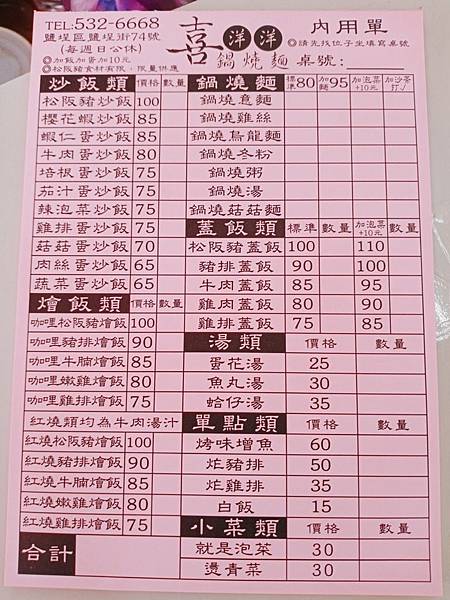 TEL:532-6668
鹽埕區鹽埕街74號
(每週日公休)
◎加飯加蛋加10元
◎松阪豬食材有限，限量供應
喜洋洋
鍋燒麵
內用單
◎請先找位子坐填寫桌號
桌號:
炒飯類 價格 數量
松阪豬炒飯 100
櫻花蝦炒飯 85
蝦仁蛋炒飯 85
牛肉蛋炒飯 80
培根蛋炒飯 75
茄汁蛋炒飯 75
辣泡菜炒飯 75
雞排蛋炒飯 75
菇菇蛋炒飯 70
肉絲蛋炒飯 65
蔬菜蛋炒飯 65
燴飯類 價格 數量
咖哩松阪豬燴飯 100
咖哩豬排燴飯 90
咖哩牛腩燴飯 85
咖哩嫩雞燴飯 80
咖哩雞排燴飯 75
紅燒類均為牛肉湯汁
紅燒松阪豬燴飯 100
紅燒豬排燴飯 90
紅燒牛腩燴飯 85
紅燒嫩雞燴飯 80
紅燒雞排燴飯 75
合計
鍋燒麵 標準80 加麵95 加泡菜+10元 加沙茶打✓
鍋燒意麵
鍋燒雞絲
鍋燒烏龍麵
鍋燒冬粉
鍋燒粥
鍋燒湯
鍋燒菇菇麵
蓋飯類 標準 數量 加泡菜+10元 數量
松阪豬蓋飯 100 110
豬排蓋飯 90 100
牛肉蓋飯 85 95
雞肉蓋飯 80 90
雞排蓋飯 75 85
湯類 價格 數量
蛋花湯 25
魚丸湯 30
蛤仔湯 35
單點類 價格 數量
烤味增魚 60
炸豬排 50
炸雞排 35
白飯 15
小菜類 價格 數量
就是泡菜 30
燙青菜 30